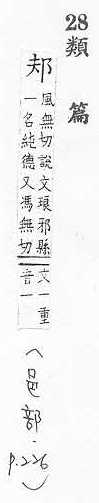 28類 篇
邞
風無切說文琅邪縣
一名純德又馮無切
文一重
音一
(邑部.
p.226)